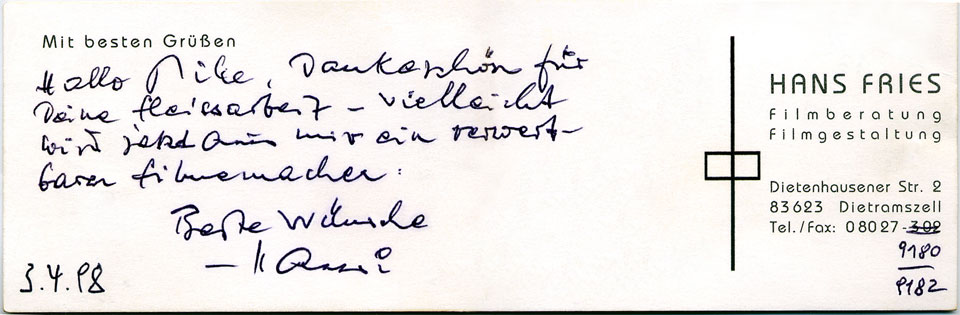 Mit besten Grüßen
Hallo Mike, Dankeschön für
Deine Fleissarbeit – vielleicht
wird jetzt aus mir ein verwert-
barer Filmemacher.
Beste Wünsche
– Hansi
3.4.98
HANS FRIES
Filmberatung
Filmgestaltung
Dietenhausener Str. 2
83623 Dietramszell
Tel./Fax: 08027-302
9180
9182